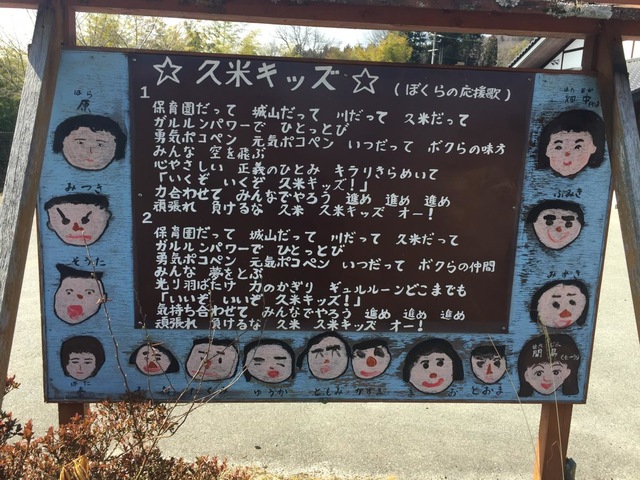 ☆ 久米キッズ ☆ (ぼくらの応援歌)
1
保育園だって 城山だって 川だって 久米だって
ガルルンパワーで ひとっとび
勇気ポコペン 元気ポコペン いつだって ボクらの味方
みんな 空を飛ぶ
心やさしい 正義のひとみ キラリきらめいて
「いくぞ いくぞ 久米キッズ!」
力合わせて みんなでやろう 進め 進め 進め
頑張れ 負けるな 久米 久米キッズ オー!
2
保育園だって 城山だって 川だって 久米だって
ガルルンパワーで ひとっとび
勇気ポコペン 元気ポコペン いつだって ボクらの仲間
みんな 夢をとぶ
光り羽ばたけ 力のかぎり ギュルルーンどこまでも
「いいぞ いいぞ 久米キッズ!」
気持ち合わせて みんなでやろう 進め 進め 進め
頑張れ 負けるな 久米 久米キッズ オー!
はら
原
みつき
そうた
ふみき
みずき
ゆうか
としみ
かずま
とおま